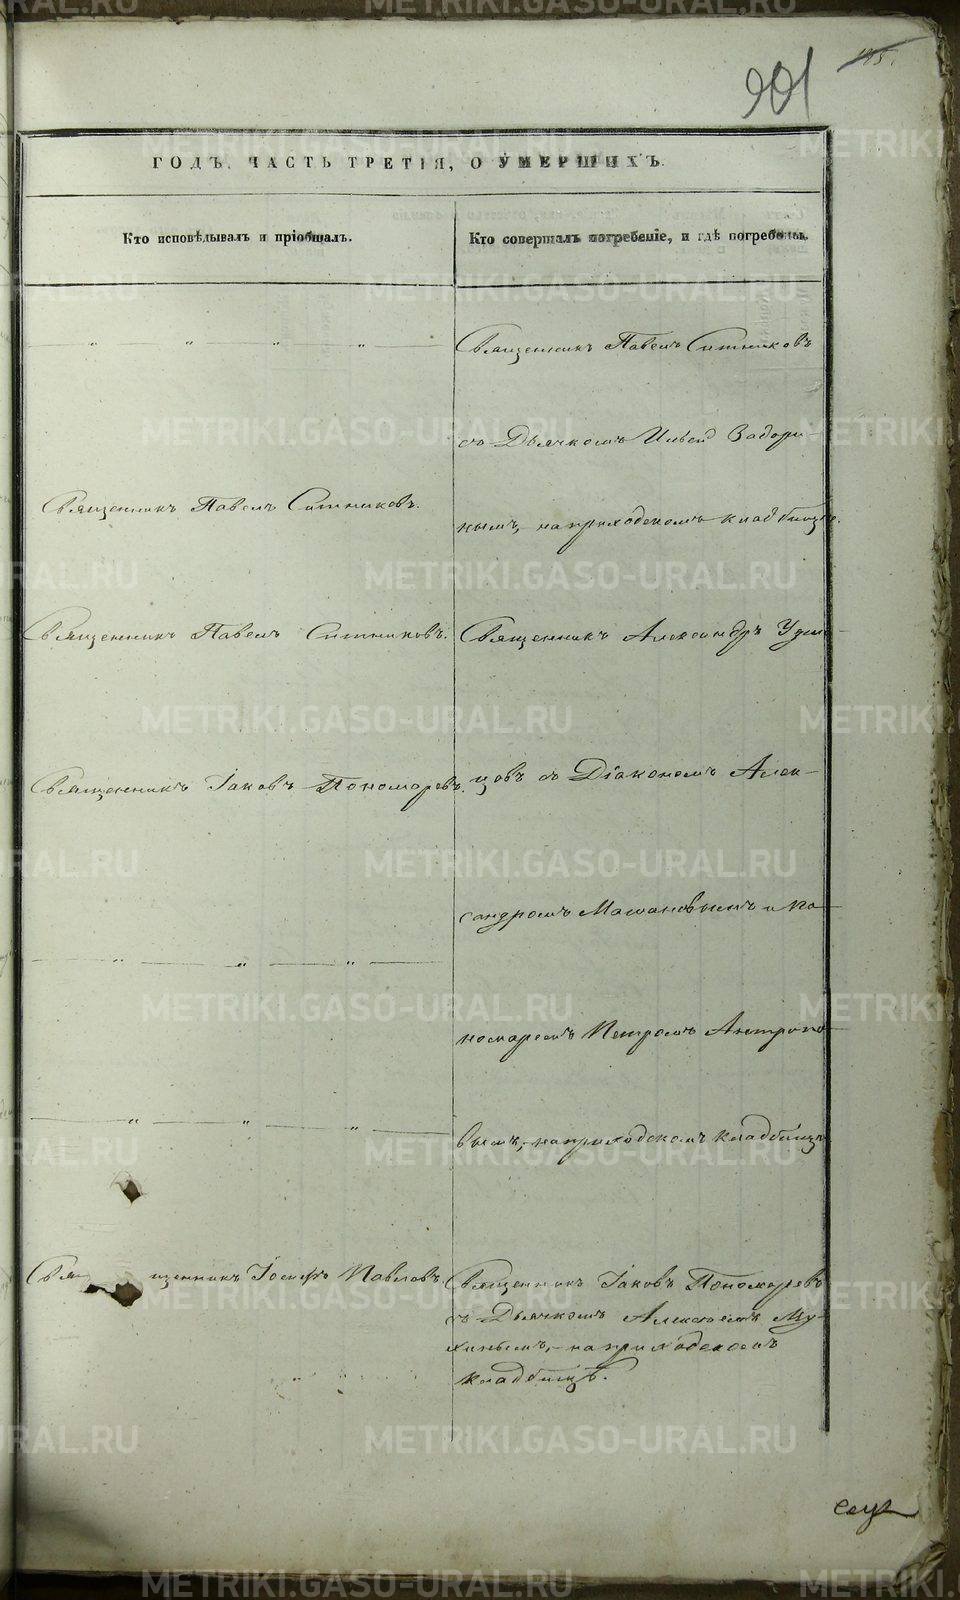 901
ГОДЪ, ЧАСТЬ ТРЕТІЯ, О УМЕРШИХЪ.
Кто исповѣдывалъ и пріобщалъ.
Кто совершалъ погребеніе, и гдѣ погребены.
Священникъ Павелъ Ситниковъ.
Священникъ Павелъ Ситниковъ.
Священникъ Іаковъ Пономаревъ.
Священникъ Іосифъ Павловъ
Священникъ Павелъ Ситниковъ
съ Дьячкомъ Ильей Задори-
нымъ, на приходскомъ кладбищѣ.
Священникъ Александръ
цовъ съ Діакономъ Алек-
сандромъ и по-
номаремъ Петромъ Антропо-
вымъ, на приходскомъ кладбищѣ
Священникъ Іаковъ Пономаревъ
съ Дьячкомъ Алексѣемъ Му-
хинымъ, на приходскомъ
кладбищѣ.
METRIKI.GASO-URAL.RU